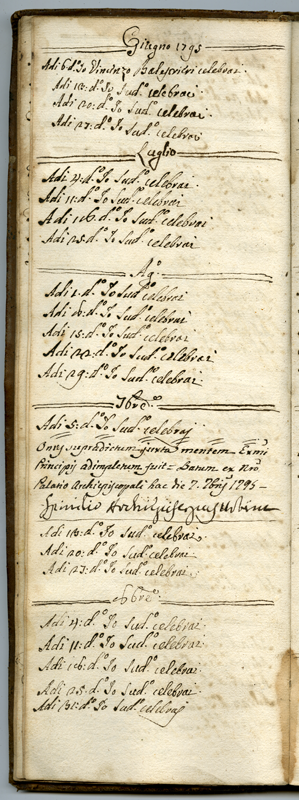 Giugno 1795
Adi 6 d.º Io Vincenzo Balestrieri celebrai
Adi 13: d.º Io Sud.º celebrai
Adi 20: d.º Io Sud.º celebrai
Adi 27: d.º Io Sud.º celebrai
Luglio
Adi 4: d.º Io Sud.º celebrai
Adi 11: d.º Io Sud.º celebrai
Adi 18: d.º Io Sud.º celebrai
Adi 25: d.º Io Sud.º celebrai
Ag.º
Adi 1: d.º Io Sud.º celebrai
Adi 8: d.º Io Sud.º celebrai
Adi 15: d.º Io Sud.º celebrai
Adi 22: d.º Io Sud.º celebrai
Adi 29: d.º Io Sud.º celebrai
7bre
Adi 5: d.º Io Sud.º celebraj
Onus supradictum juxta mentem Exmi
Principis adimpletum fuit - Datum ex Nrō
Palatio Archiepiscopali hac die 7. 7bris 1795 -
Archiepiscopus
Adi 13: d.º Io Sud.º celebrai
Adi 20: d.º Io Sud.º celebrai
Adi 27: d.º Io Sud.º celebrai
8bre
Adi 4: d.º Io Sud.º celebrai
Adi 11: d.º Io Sud.º celebrai
Adi 18: d.º Io Sud.º celebrai
Adi 25: d.º Io Sud.º celebrai
Adi 31: d.º Io Sud.º celebraj